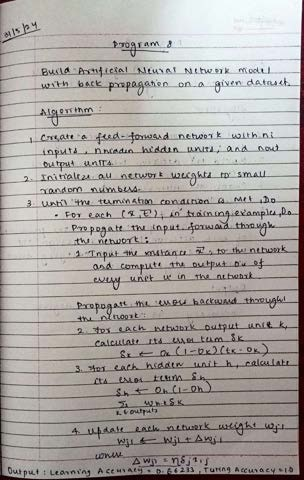 Program 8
Build Artificial Neural Network model
with back propagation on a given dataset.
Algorithm:
1. Create a feed-forward network with ni
inputs, nhidden hidden units, and nout
output units.
2. Initialize all network weights to small
random numbers.
3. Until the termination condition is met, Do
• For each (x, t), in training examples, Do
Propogate the input forward through
the network:
• 1. Input the instance x, to the network
and compute the output ou of
every unit u in the network.
Propogate the errors backward through
the network:
2. For each network output unit k,
calculate its error term δk
δk ← Ok (1-Ok)(tk-Ok)
3. For each hidden unit h, calculate
its error term δh
δh ← Oh (1-Oh)
Σ wh,k δk
k ∈ outputs
4. Update each network weight wji
wji ← wji + Δwji
where
Δwji = ηδj xi,j
Output: Learning Accuracy = 0.66233, Tuning Accuracy = 1.0